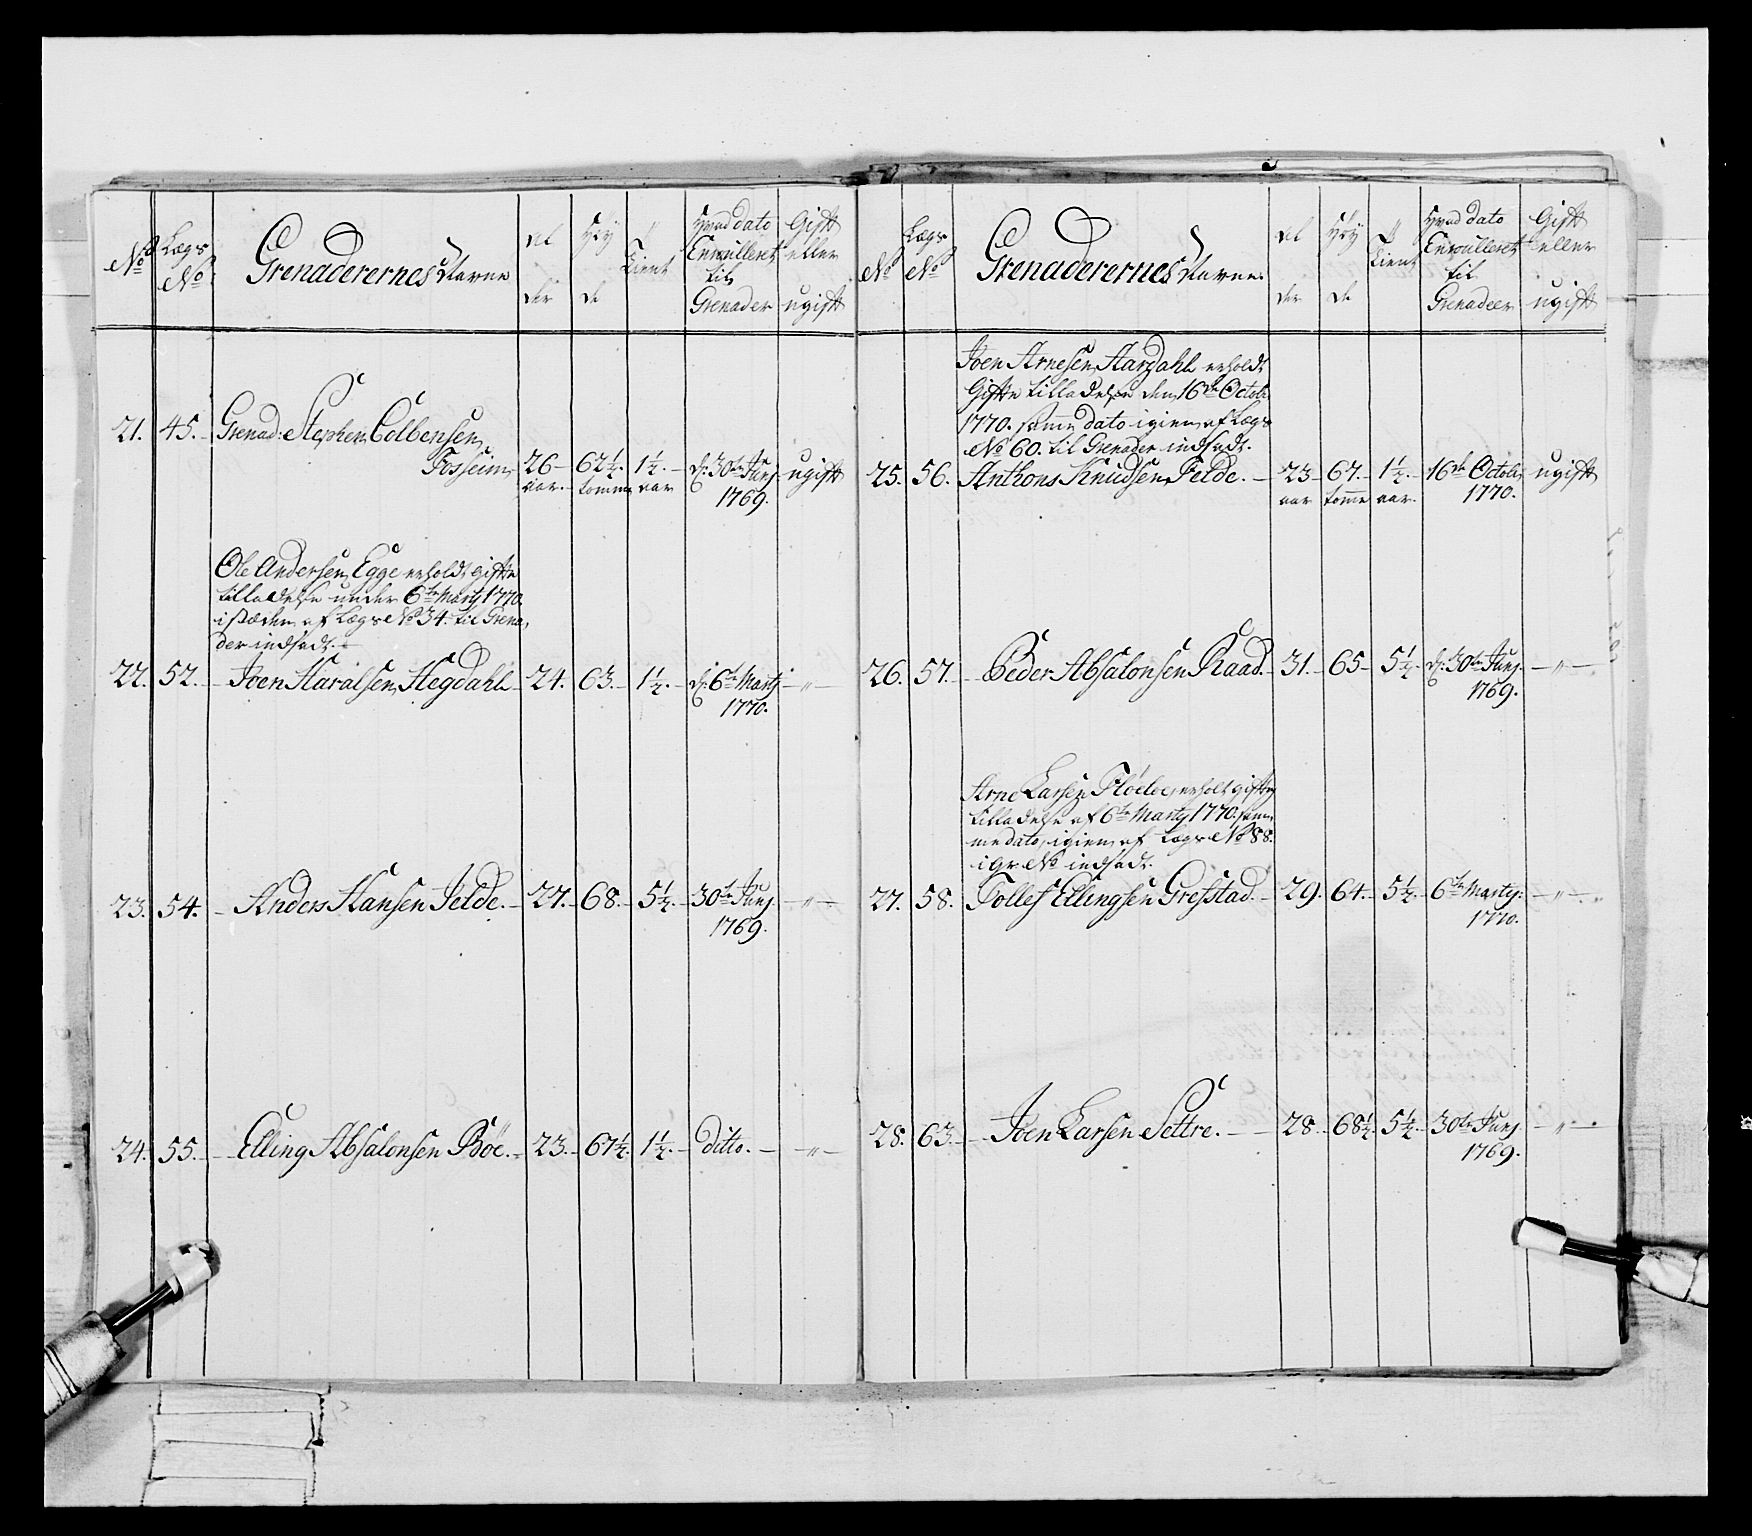 No
Lægs No
Grenaderernes Navne
Al der
Høy de
Tient
Hvad dato Enroulleret til Grenader
Gift eller ugift
21. 45. Grenad: Stephen Colbensen
Fosseim, 26 62½. 1½. d: 30te Junj ugift
aar. tomme aar 1769.
Ole Andersen Egge erholdt gifte
tilladelse under 6te Martj 1770.
i stæden af Lægs No 34. til Grena,
der indsadt.
22. 52. Joen Haralsen Hegdahl 24. 63. 1½. d: 6te Martj — „ —
1770.
23. 54. Anders Hansen Jelde. 27. 68. 5½. 30te Junj — „ —
1769.
24. 55. Elling Absalonsen Böe. 23. 67½. 1½. Ditto. — „ —
No
Lægs No
Grenaderernes Navne.
Al der
Høy de
Tient
Hvad dato Enroulleret til Grenadeer
Gift eller ugift
Joen Arnesen Aardahl erholdt
Gifte tilladelse den 16de Octobr
1770. samme dato igien af Lægs
No 60. til Grenader indsadt.
25. 56. Anthons Knudsen Felde. 23 67. 1½. 16de Octobr ugift
aar tomme aar. 1770.
26. 57. Peder Absalonsen Raad. 31. 65 5½ d: 30te Junj — „ —
1769.
Arne Larsen Flöeloe, erholt gifte
tilladelse af 6te Martj 1770. sam
me dato, igien af Lægs No 88.
i gr No indsadt.
27. 58. Tollef Ellingsen Grefstad. 29. 64. 5½. 6te Martj. — „ —
1770.
28. 63. Joen Larsen Settre. 28 68½ 5½ 30te Junj — „ —
1769.